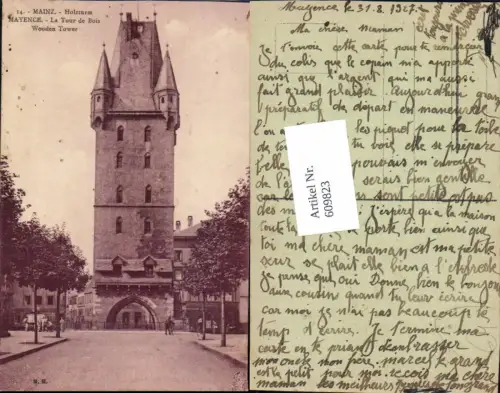 14. - MAINZ. - Holzturm
MAYENCE. - La Tour de Bois
Wooden Tower
N. M.
Mayence le 31.8.1927.
Ma chère Maman
Je t'envoie cette carte pour te remercier
du colis que le copain m'a apporté
ainsi que l'argent qui m'a aussi
fait grand plaisir Aujourd'hui grand
préparatif de départ en manœuvre
l'on a les piquet pour sa toile
de tu vois, elle se prépare
belle pouvais m'envoyer
de l'a serais bien gentille
car les sont petits et pas
des m J'espère qu'à la maison
tout porte bien ainsi que
toi ma chère maman et ma petite
sœur se plait elle bien à
je pense que oui Donne bien le bonjour
aux cousins quand tu leur écrira
car moi je n'ai pas beaucoup le
temp d'écrire. Je termine ma
carte en te priant d'embrasser
mon oncle mon frère marcel le grand
et le petit pour moi. recois ma chère
maman les meilleurs
Artikel Nr.
609823